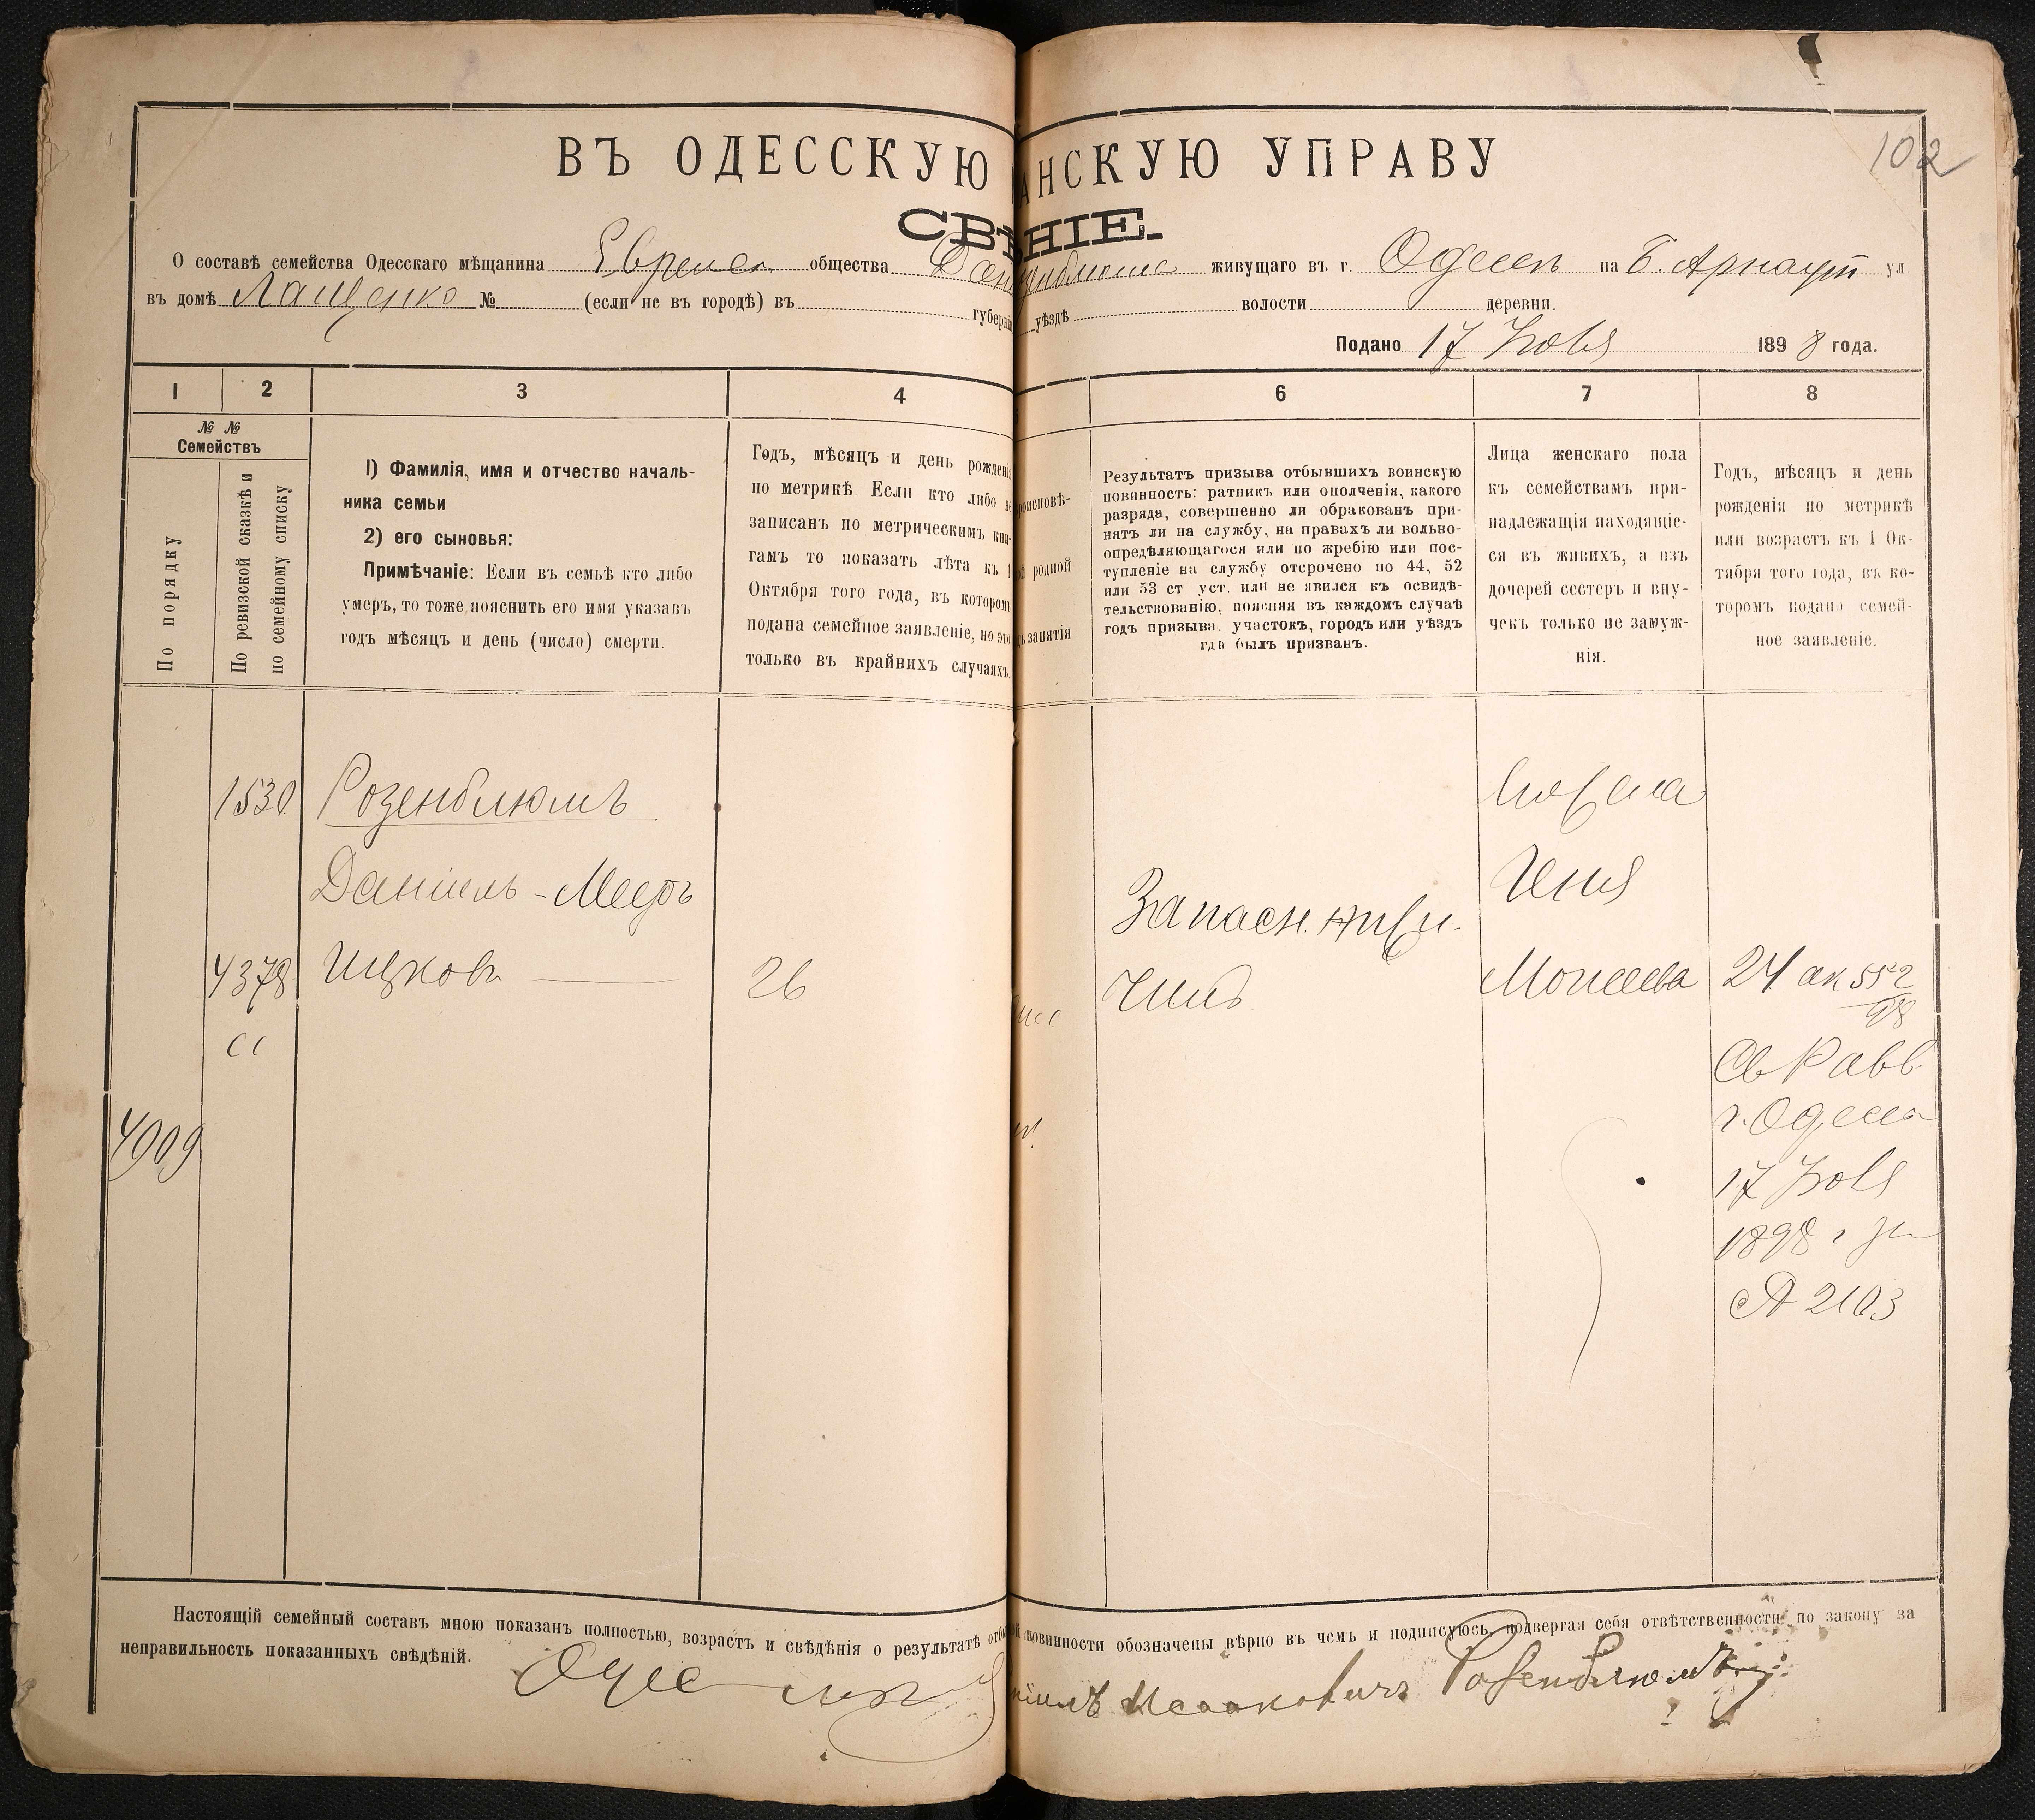 102
ВЪ ОДЕССКУЮ АНСКУЮ УПРАВУ
СВѢНІЕ.
О составѣ семейства Одесскаго мѣщанина общества живущаго въ г. Одессѣ на Б. Арнаут ул
въ домѣ Лащенко № (если не въ городѣ) въ губерні уѣздѣ волости деревни.
Подано 17 Ноября 1898 года.
1 2 3 4 6 7 8
№ №
Семействъ
По порядку
По ревизской сказкѣ и
по семейному списку
1) Фамилія, имя и отчество началь-
ника семьи
2) его сыновья:
Примѣчаніе: Если въ семьѣ кто либо
умеръ, то тоже пояснить его имя указавъ
годъ мѣсяцъ и день (число) смерти.
Годъ, мѣсяцъ и день рожденія
по метрикѣ Если кто либо не
записанъ по метрическимъ кни-
гамъ то показать лѣта къ 1
Октября того года, въ которомъ
подана семейное заявленіе, но это
только въ крайнихъ случаяхъ
роисповѣ-
родной
занятія
Результатъ призыва отбывшихъ воинскую
повинность: ратникъ или ополченія, какого
разряда, совершенно ли обракованъ при-
нятъ ли на службу, на правахъ ли вольно-
опредѣляющагося или по жребію или пос-
тупленіе на службу отсрочено по 44, 52
или 53 ст уст. или не явился къ освидѣ-
тельствованію, поясняя въ каждомъ случаѣ
годъ призыва, участокъ, городъ или уѣздъ
гдѣ былъ призванъ.
Лица женскаго пола
къ семействамъ при-
надлежащія находящіе-
ся въ живихъ, а изъ
дочерей сестеръ и вну-
чекъ только не замуж-
нія.
Годъ, мѣсяцъ и день
рожденія по метрикѣ
или возрастъ къ 1 Ок-
тября того года, въ ко-
торомъ подано семей-
ное заявленіе.
1530 Розенблюмъ
Даніиль-Мееръ
4378 Ицковъ 26
сс
4909
Запасн.
Чинъ
Моисеева
24 ак 552
98
Св Равв
г. Одессы
17 Ноя
1898 г за
№ 2103
Настоящій семейный составъ мною показанъ полностью, возрастъ и свѣдѣнія о результатѣ отбы повинности обозначены вѣрно въ чемъ и подписуюсь, подвергая себя отвѣтственности по закону за
неправильность показанныхъ свѣдѣній.
Исааковичъ Розенблюмъ